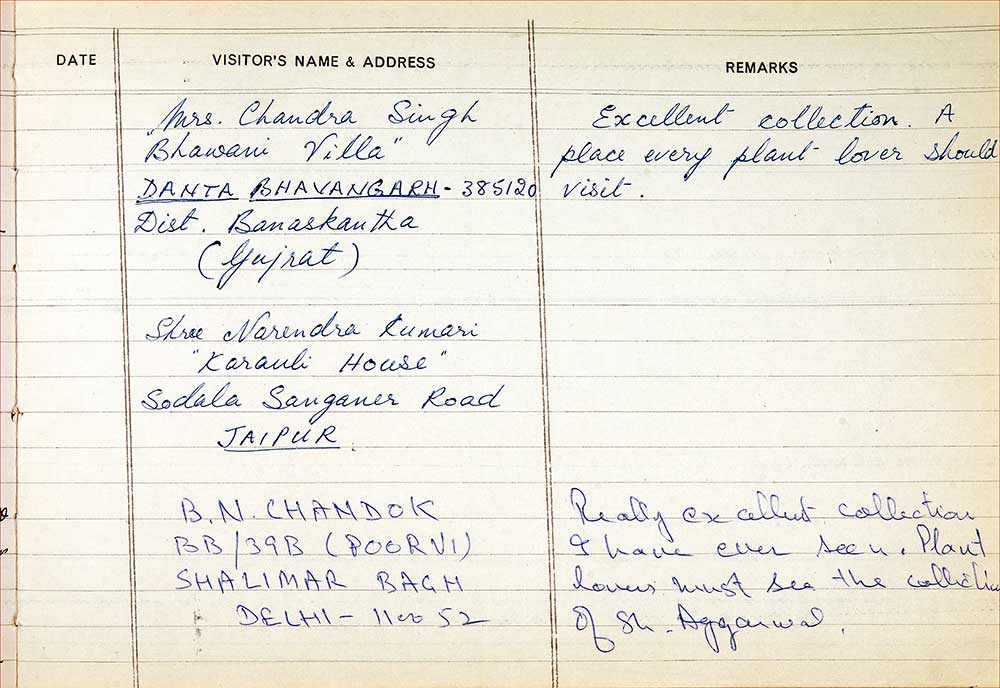 DATE
VISITOR'S NAME & ADDRESS
REMARKS
Mrs. Chandra Singh
"Bhawani Villa"
DANTA BHAVANGARH - 385120
Dist. Banaskantha
(Gujrat)
Excellent collection. A
place every plant lover should
visit.
Shree Narendra Kumari
"Karauli House"
Sodala Sanganer Road
JAIPUR.
B.N. CHANDOK
BB/39B (POORVI)
SHALIMAR BAGH
DELHI - 110052
Really excellent collection
I have ever seen. Plant
lovers must see the collection
of Sh. Aggarwal.